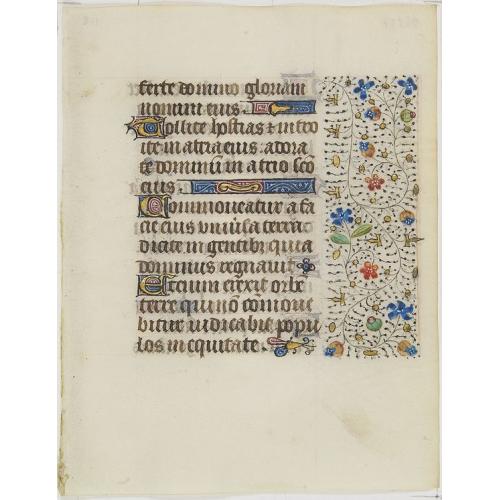 ferte domino gloriam
nomini eius.
Tollite hostias & intro
ite in atria eius: adora
te dominũ in atrio scõ
eius.
Commoueatur a fa
cie eius uniũsa terra
dicite in gentibȝ quia
dominus regnauit
Etenim erexit orbẽ
terre qui nõ cõmoue
bitur iudicabit popu
los in equitate.